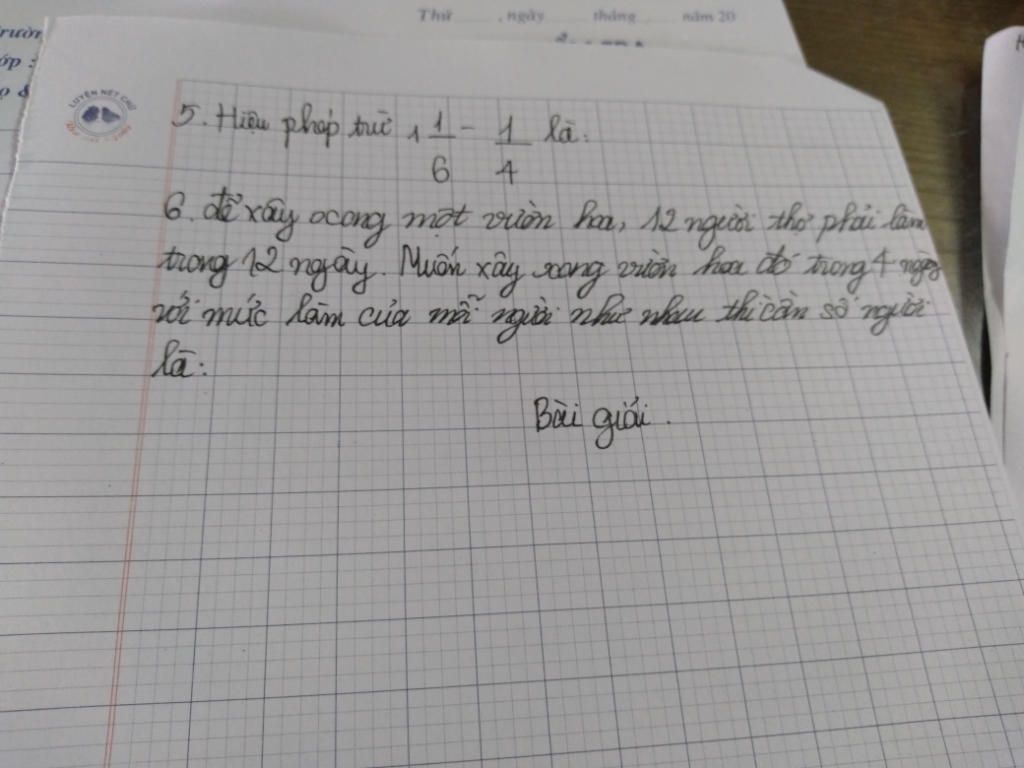 Thứ , ngày tháng năm 20
LUYỆN NÉT CHỮ
5. Hiệu phép trừ 1 1/6 - 1/4 là:
6. để xây xong một vườn hoa, 12 người thợ phải làm
trong 12 ngày. Muốn xây xong vườn hoa đó trong 4 ngày
với mức làm của mỗi người như nhau thì cần số người
là:
Bài giải.